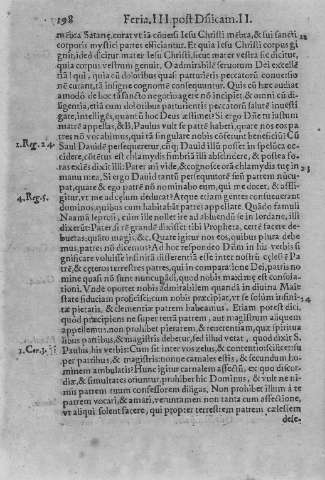 198 Feria. III. post Dñicam. II.
mēbra Satanę, curat vt iā cōuersi Iesu Christi mēbra, & sui sancti 12
corporis mystici partes efficiantur. Et quia Iesu Christi corpus gi
gnit, ideo dicitur mater Iesu Christi, sicut mater vestra sic dicitur,
quia corpus vestrum genuit. O admirabilē seruorum Dei
nā! qui, quia cū doloribus quasi parturientis peccatorū conuersio
nē curant, tā insigne cognomē consequuntur. Quis cū hæc audiat
amodò de hoc tā sancto negotio agere nō incipit, & omni cū di-
ligentia, etiā cum doloribus parturientis peccatorū salutē inuesti
gare, intelligēs, quanti hoc Deus æstimet? Si ergo Dñs tā iustum
matrē appellas, & B. Paulus vult se patrē haberi, quare nos eos pa
tres nō vocabimus, qui tā singulare nobis cōferunt beneficiū? Cū
1. Reg. 24. Saul Dauidē persequeretur, cūq; Dauid illū posset in spelūca oc-
cidere, cōtētus est chlamydis fimbriā illi abscindere, & postea fo-
ras exēs dixit illi: Pater mi vide, & cognosce orā chlamydis tuę in 13
manu mea, Si ergo Dauid tantū persequutorē suū patrem nuncu-
pat, quare & ego patrē nō nominabo eum, qui me docet, & affli-
gitur, vt me ad cęlum deducat? Atque etiam gentes consueuerant
4. Reg. 5. dominos, quibus cum habitabāt patres appellare. Quādo famuli
Naamā leprosi, cùm ille nollet ire ad abluendū se in Iordane, illi
dixerūt: Pater si rē grandē dixisset tibi Propheta, certè facere de-
buetas, quātò magis, &c. Quare igitur nos eos, quibus plura debe
mus, patres nō dicemus? Ad hoc respondeo Dñm in his verbis si
gnificare voluisse insinitā differentiā esse inter nostrū cęlestē Pa
trē, & cęteros terrestres patres, qui in comparatione Dei, patris no
mine quasi nō sunt nuncupādi, quod nobis maximę est consolat-
tioni. Vnde oportet nobis admirabilem quandā in diuina Maie
state fiduciam proficisci; cum nobis pręcipiat, vt se solùm infini- 14
tæ pietatis, & clementiæ patrem habeamus. Etiam potest dici,
quòd præcipiens ne super terrā patrem, aut magistrum aliquem
appellemus, non prohibet pietarem, & reuerentiam, quæ spiritua
libus patribus, & magistris debetur, sed illud vetat, quod dixit S.
1. Cor. 3. Paulus, his verbis: Cum sit inter vos zelus, & contentio scilicet su
per patribus, & magistris: nonne carnales estis, & secundum ho-
minem ambulatis? Hunc igitur carnalem affectū, ex quo discor-
diæ, & simultates oriuntur, prohibet hic Dominus, & vult ne ni-
mis patrem suum confessorem diligas. Non prohibet illum à te
patrem vocari, & amari, verumtamen non tanta cum affectione,
vt aliqui solent facere, qui propter terrestrem patrem cælestem
dese-